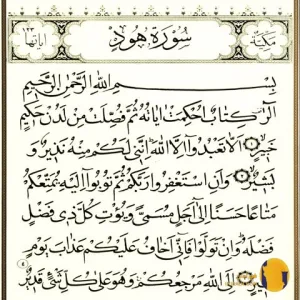 مكية سورة هود اياتها ١٢٣
بسم الله الرحمن الرحيم
الر كتاب احكمت اياته ثم فصلت من لدن حكيم
خبير الا تعبدوا الا الله انني لكم منه نذير و
بشير وان استغفروا ربكم ثم توبوا اليه يمتعكم
متاعا حسنا الى اجل مسمى ويؤت كل ذي فضل
فضله وان تولوا فاني اخاف عليكم عذاب يوم
الى الله مرجعكم وهو على كل شئ قدير